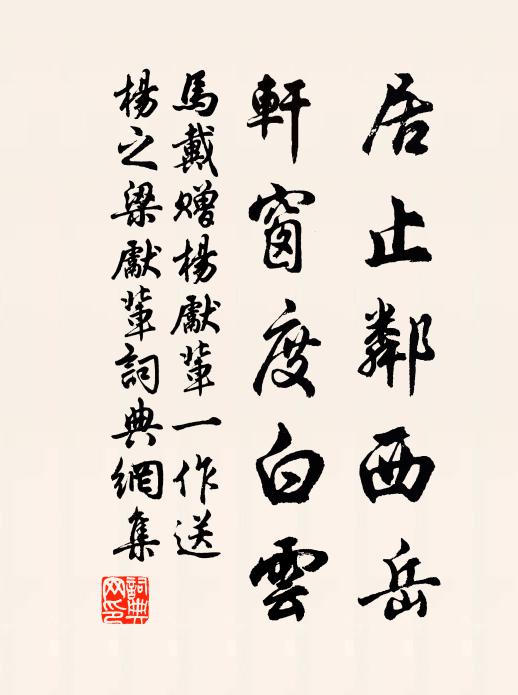 居止鄰西岳
軒窗度白雲
馬戴贈楊獻輩一作送
楊之梁獻輩詞典網集
詞典网印